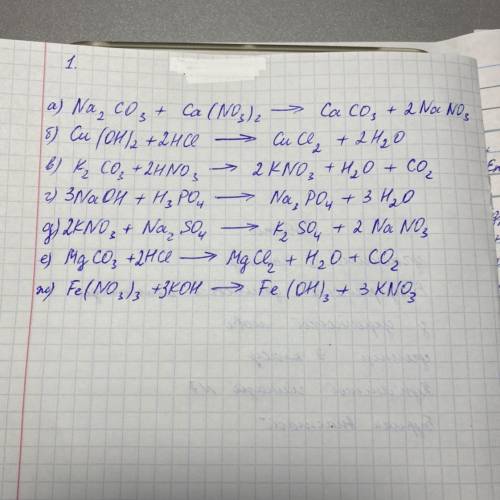 1.
а) Na₂CO₃ + Ca(NO₃)₂ → CaCO₃ + 2NaNO₃
б) Cu(OH)₂ + 2HCl → CuCl₂ + 2H₂O
в) K₂CO₃ + 2HNO₃ → 2KNO₃ + H₂O + CO₂
г) 3NaOH + H₃PO₄ → Na₃PO₄ + 3H₂O
д) 2KNO₃ + Na₂SO₄ → K₂SO₄ + 2NaNO₃
е) MgCO₃ + 2HCl → MgCl₂ + H₂O + CO₂
ж) Fe(NO₃)₃ + 3KOH → Fe(OH)₃ + 3KNO₃